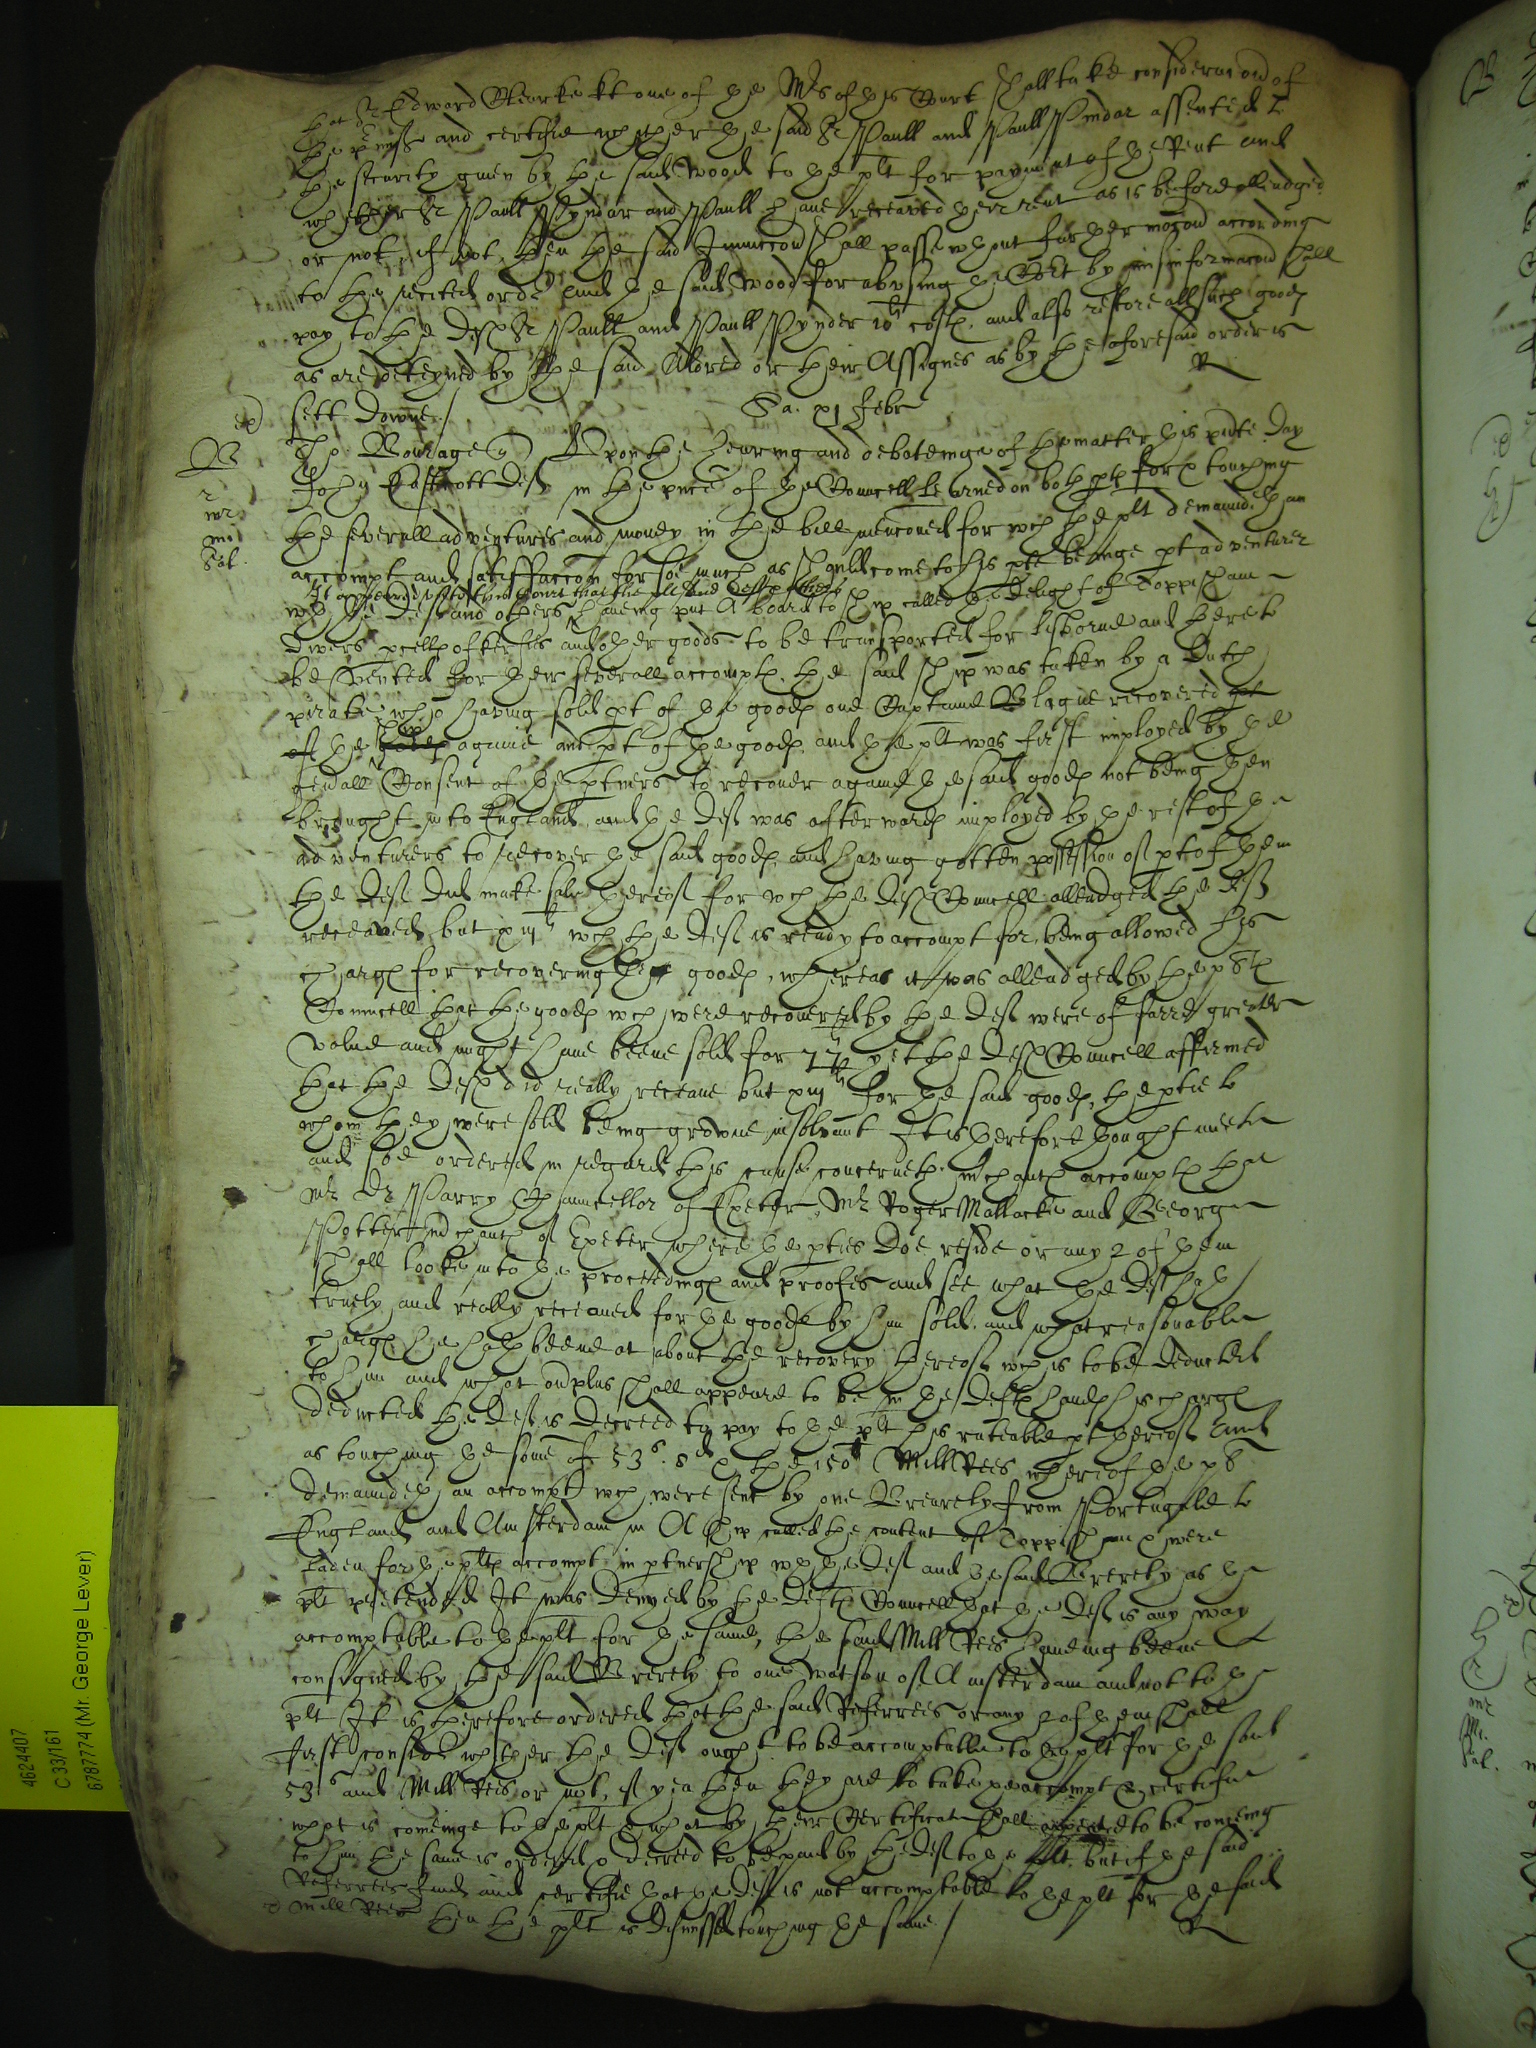 that Sr Edward Clearke kt one of the Mrs of this Court shall take consideracion of
the pmiss and certifie whether the said Sr Paull and Paull Pindar assented to
the security given by the said Wood to the plt for payment of the Rent and
whether Sr Paull Pyndar and Paull have receaved their rent as is before alleadged
or not, if not, then the said Iniunccon shall passe wthout further mocion according
to the recited order and the said Wood for abusing the Court by misinformacon shall
pay to the Defts Sr Paull and Paull Pynder 10li costs, and also restore all such goods
as are deteyned by the said Alored or their Assignes as by the aforesaid order is
sett downe / R
Sa. xj Febr
Tho. Bourage plt Upon the hearing and debateinge of the matter this pnte day
John Eastcott Deft in the pnce of the Councell learned on both pts for & touching
the severall adventures and money in the bill mencioned for wch the plt demaundeth an
accompt and satisfaccon for soe much as should come to his pte beinge pt adventurer
It appeared unto this Court that the plt and Deft & others
wth the Deft and others haveing put A board to ship called the Delight of Toppisham
Divers pcells of kersies and other goods to be transported for Lisborne and there to
be vented for their severall accompts, the said ship was taken by a Dutch
pirate who having sold pt of the goods one Captaine Blague recovered
the againe and pt of the goods and the plt was first imployed by the
generall Consent of the ptners to recover againe the said goods not being then
brought into England and the Deft was afterwards imployed by the rest of the
adventurers to recover the said goods and having gotten possession of pt of them
the Deft did make sale thereof for wch the Defts Councell alleadged the Deft
receaved but xiijli wch the Deft is ready to accompt for, being allowed his
charges for recovering the goods, whereas it was alleadged by the plts
Councell that the goods wch were recovered by the Deft were of farre greater
value and might have beene sold for 77li yet the Defts Councell affirmed
that the Deft did really receave but xiijli for the said goods, the ptie to
whom they were sold being growne insolvent It is therefore thought meete
and soe ordered in regard this cause concerneth mchants accompts that
Mr Dr Parry Chauncellor of Exeter, Mr Roger Mallacke and George
Potter mchants of Exeter where the pties doe reside or any 2 of them
shall looke into the proceedings and proofes and see what the Deft hath
truely and really receaved for the goods by him sold, and what reasonable
charges he hath beene at about the recovery thereof wch is to be deducted
to him and what ovrplus shall appeare to be in the Defts hands his charges
deducted the Deft is decreed to pay to the plt his rateable pt thereof And
as touching the some of 53s. 8d & the 150 Mill Rees whereof the plt
demaundeth an accompt wch were sent by one Brerely from Portugale to
England and Amsterdam in A ship called the content of Toppisham & were
laden for the plts accompt in ptnership wth the Deft and the said Brerely as the
plt pretended It was denyed by the Defts Councell that the Deft is any way
accomptable to the plt for the same, the said Mill Rees haveing beene
consigned by the said Brerely to one Watson of Amsterdam and not to the
plt It is therefore ordered that the said Referrees or any 2 of them shall
first consider whether the Deft ought to be accomptable to the plt for the said
53s and Mill Rees or not, if yea then they are to take the accompt & certifie
what is comeinge to the plt & what by their Certificate shall appeare to be comeing
to him the same is ordered & decreed to be paid by the Deft to the plt, but if the said
Referrees finde and certifie that the Deft is not accomptable to the plt for the said
Mill Rees then the plt is dismissed touching the same / R
4624407
C 33/161
6787774 (Mr. George Lever)